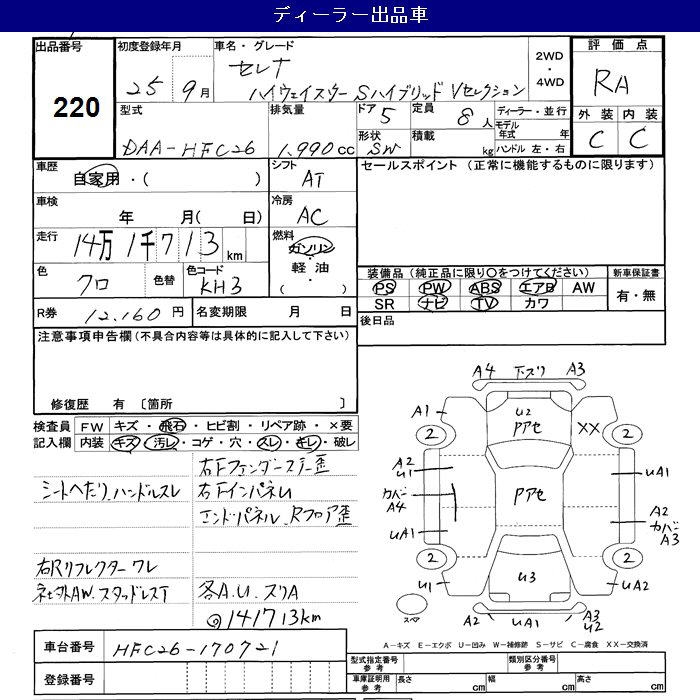 ディーラー出品車
出品番号
220
初度登録年月
25 9月
車名・グレード
セレナ
ハイウェイスター Sハイブリッド Vセレクション
2WD
・
4WD
評価点
RA
外装 内装
C C
型式
DAA-HFC26
排気量
1,990cc
ドア 5
定員 8人
形状 SW
積載 kg
ディーラー・並行
モデル年式 年
ハンドル 左・右
車歴
自家用・( )
シフト
AT
セールスポイント (正常に機能するものに限ります)
車検
年 月( 日)
冷房
AC
走行
14万1千713km
燃料
ガソリン
・
軽油
・
( )
色
クロ
色替
色コード
KH3
装備品(純正品に限り○をつけてください)
新車保証書
PS PW ABS エアB AW
有・無
SR ナビ TV カワ
R券 12,160円
名変期限 月 日
後日品
注意事項申告欄(不具合内容等は具体的に記入して下さい)
修復歴 有 〔箇所 〕
検査員記入欄
FW キズ・飛石・ヒビ割・リペア跡・×要
内装 キズ・汚レ・コゲ・穴・スレ・キレ・破レ
右Fフェンダーステー歪
シートへたり、ハンドルスレ
右FインパネU
エンドパネル、Rフロア歪
右Rリフレクターワレ
社外AW、スタッドレスT
各A.U.スリA
◎141713km
A4 下ズリ A3
A1
U2
Pアセ
XX
2
2
A2
U1
カバー
A4
Pアセ
UA1
A2
カバー
A3
UA1
2
2
U1
U3
UA2
スペア
A2
UA1
A3
U2
A-キズ E-エクボ U-凹み W-補修跡 S-サビ C-腐食 XX-交換済
車台番号
HFC26-170721
登録番号
型式指定番号 参考
類別区分番号 参考
車庫証明用 参考
長さ cm
幅 cm
高さ cm